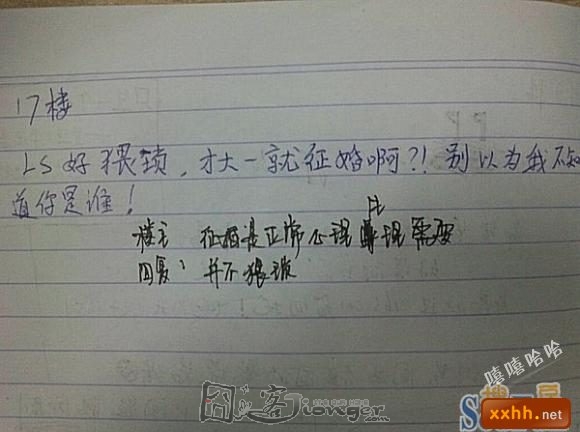 17楼
LS好猥琐，才大一就征婚啊?! 别以为我不知
道你是谁！
楼主 征婚是正常心理生理需要
回复： 并不猥琐
嘻嘻哈哈
囧客
jionger.com
xxhh.net